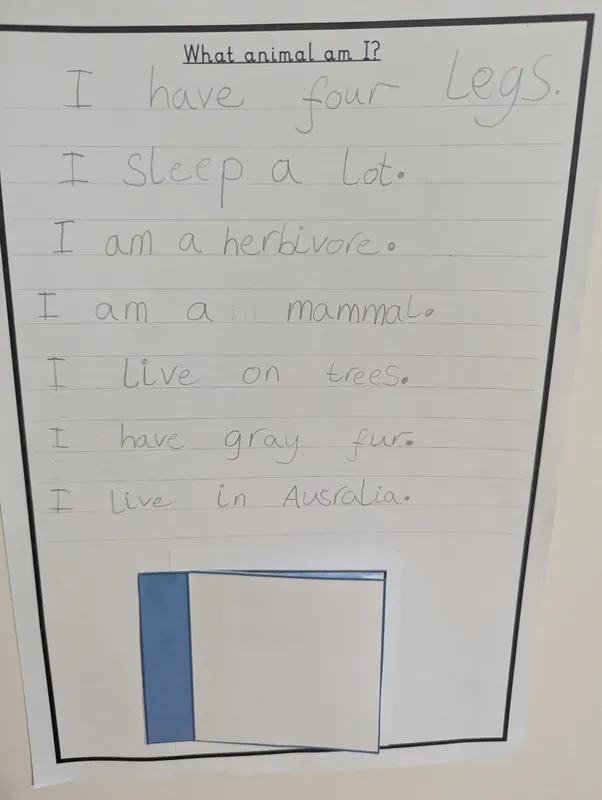 What animal am I?
I have four Legs.
I Sleep a Lot.
I am a herbivore.
I am a mammal.
I Live on trees.
I have gray fur.
I Live in Ausralia.